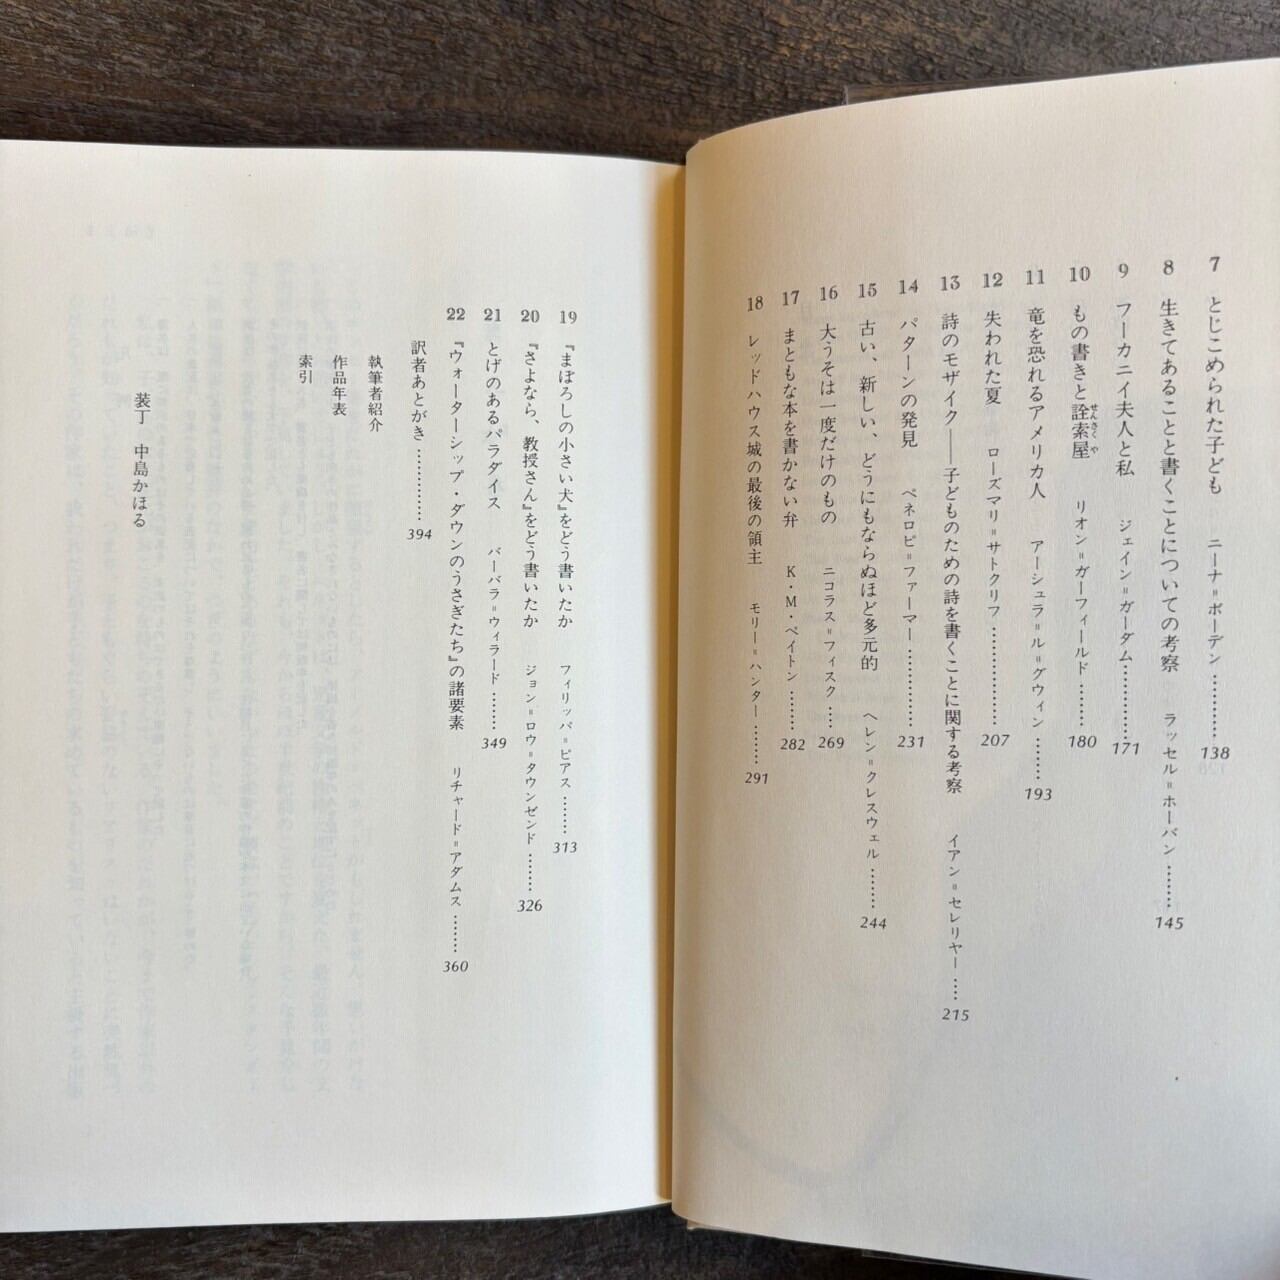 7 とじこめられた子ども ニーナ=ボーデン………138
8 生きてあることと書くことについての考察 ラッセル=ホーバン………145
9 フーカニイ夫人と私 ジェイン=ガーダム………171
10 もの書きと詮索屋 リオン=ガーフィールド………180
せんさくや
11 竜を恐れるアメリカ人 アーシュラ=ル=グウィン………193
12 失われた夏 ローズマリ=サトクリフ………207
13 詩のモザイク――子どものための詩を書くことに関する考察 イアン=セレリヤー……215
14 パターンの発見 ペネロピ=ファーマー………231
15 古い、新しい、どうにもならぬほど多元的 ヘレン=クレスウェル………244
16 大うそは一度だけのもの ニコラス=フィスク……269
17 まともな本を書かない弁 K・M・ペイトン………282
18 レッドハウス城の最後の領主 モリー=ハンター………291
19 『まぼろしの小さい犬』をどう書いたか フィリッパ=ピアス………313
20 『さよなら、教授さん』をどう書いたか ジョン=ロウ=タウンゼンド………326
21 とげのあるパラダイス バーバラ=ウィラード………349
22 『ウォーターシップ・ダウンのうさぎたち』の諸要素 リチャード=アダムス………360
訳者あとがき…………394
執筆者紹介
作品年表
索引
装丁 中島かほる